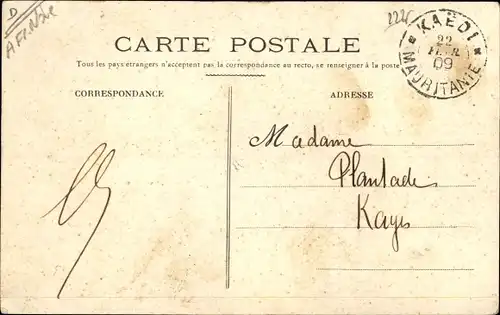 D
2225
KAËDI
22
FEVR
09
MAURITANIE
CARTE POSTALE
Tous les pays étrangers n'acceptent pas la correspondance au recto, se renseigner à la poste
CORRESPONDANCE
ADRESSE
Madame
Plantade
Kayes